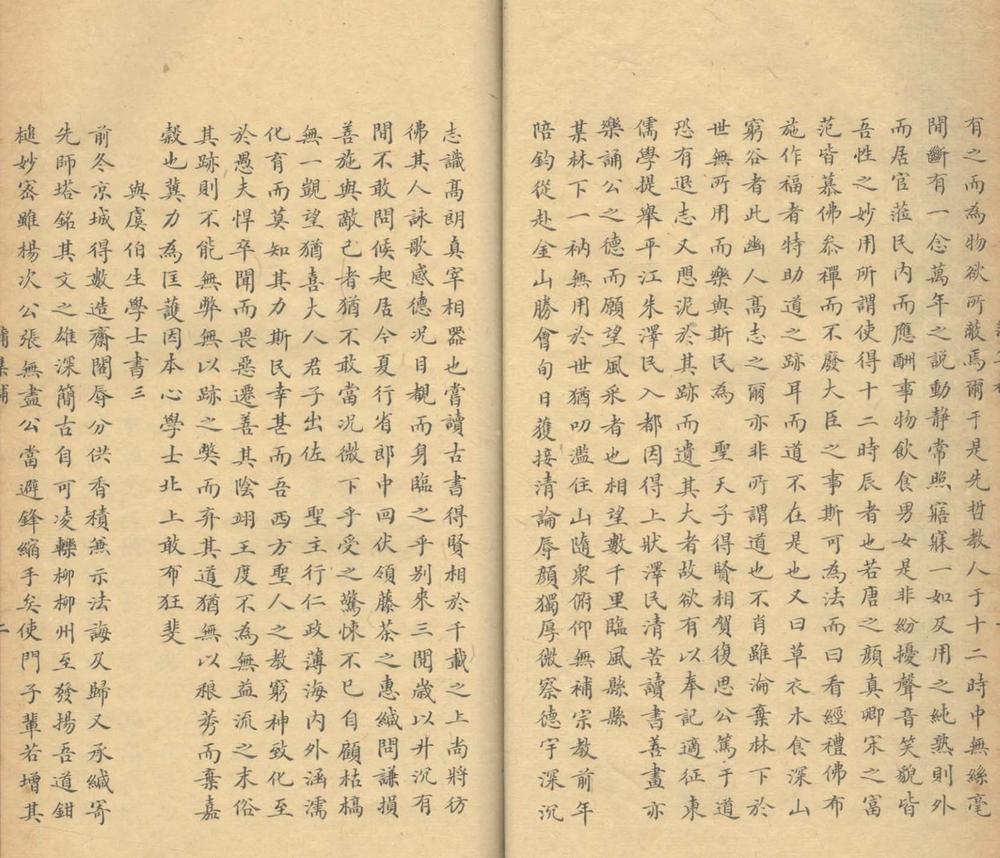 有之而為物欲所蔽焉爾于是先哲教人于十二時中無絲毫
間斷有一念萬年之説動靜常照寤寐一如及用之純熟則外
而居官蒞民内而應酬事物飲食男女是非紛擾聲音笑貌皆
吾性之妙用所謂使得十二時辰者也若唐之顔真卿宋之富
范皆慕佛叅禪而不廢大臣之事斯可為法而曰看經禮佛布
施作福者特助道之跡耳而道不在是也又曰草衣木食深山
窮谷者此幽人高志之爾亦非所謂道也不肖雖淪棄林下於
世無所用而樂與斯民為 聖天子得賢相賀復思公篤于道
恐有退志又思泥於其跡而遺其大者故欲有以奉記適征東
儒學提舉平江朱澤民入都因得上狀澤民清苦讀書善畫亦
樂誦公之德而願望風采者也相望數千里臨風縣縣
某林下一衲無用於世猶叨濫住山隨衆俯仰無補宗教前年
陪鈞從赴金山勝會旬日獲接清論辱顔獨厚微察德宇深沉
志識高朗真宰相器也嘗讀古書得賢相於千載之上尚將彷
佛其人詠歌感德况目覩而身臨之乎别來三閲歳以升沉有
間不敢問候起居今夏行省郎中回伏領藤茶之惠緘問謙損
善施與敵己者猶不敢當况微下乎受之驚悚不已自顧枯槁
無一覬望猶喜大人君子出佐 聖主行仁政薄海内外涵濡
化育而莫知其力斯民幸甚而吾西方聖人之教窮神致化至
於愚夫悍卒聞而畏惡遷善其陰翊王度不為無益流之末俗
其跡則不能無弊無以跡之獘而弃其道猶無以稂莠而棄嘉
穀也冀力為匡護因本心學士北上敢布狂斐
與虞伯生學士書三
前冬京城得數造齋閣辱分供香積無示法誨及歸又承緘寄
先師塔銘其文之雄深簡古自可凌轢柳柳州至發揚吾道鉗
槌妙宻雖楊次公張無盡公當避鋒縮手矣使門子輩若增其